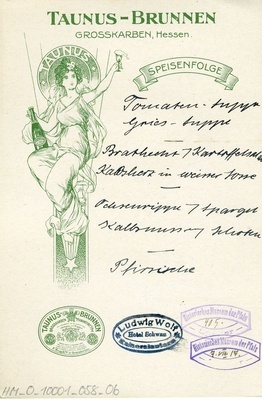 TAUNUS-BRUNNEN
GROSSKARBEN, Hessen.
TAUNUS
SPEISENFOLGE
Tomaten-suppe
Gries-suppe
Brathecht / Kartoffelsalat
Kalbsherz in weisser
Ochsenrippe / Spargel
Kalbsnuss /
Pfirsiche
TAUNUS-BRUNNEN
Ludwig Wolf
Hotel Schwan
Kaiserslautern
Historisches Museum der Pfalz
Historisches Museum der Pfalz
HM_0_10001_058_06